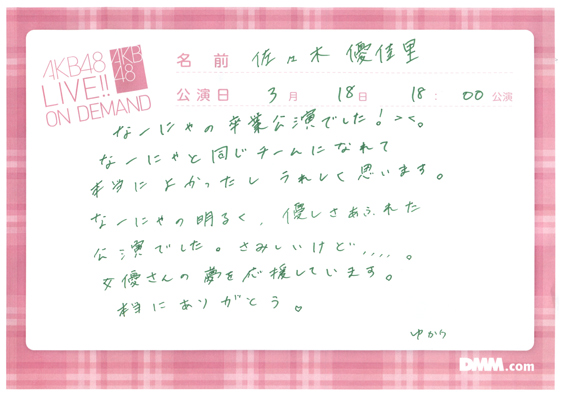 AKB48
LIVE!!
ON DEMAND
AKB
48
名前 佐々木 優佳里
公演日 3月 18日 18:00公演
なーにゃの卒業公演でした!><。
なーにゃと同じチームになれて
本当によかったし うれしく思います。
なーにゃの明るく、優しさあふれた
公演でした。さみしいけど、、、、。
女優さんの夢を応援しています。
本当にありがとう。
ゆかり
DMM.com